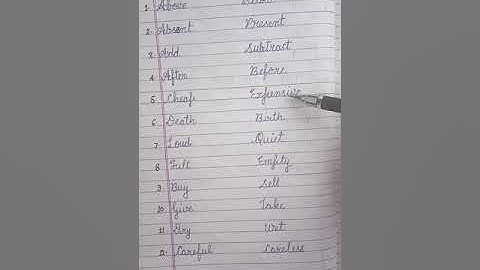 1. Above Below
2. Absent Present
3. Add Subtract
4. After Before
5. Cheap Expensive
6. Death Birth
7. Loud Quiet
8. Full Empty
9. Buy Sell
10. Give Take
11. Dry Wet
12. Careful Careless